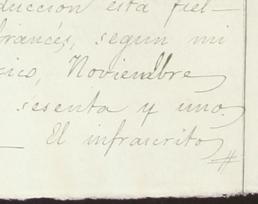 ducción está fiel-
francés, segun mi
xico, Noviembre
sesenta y uno.
El infrascrito